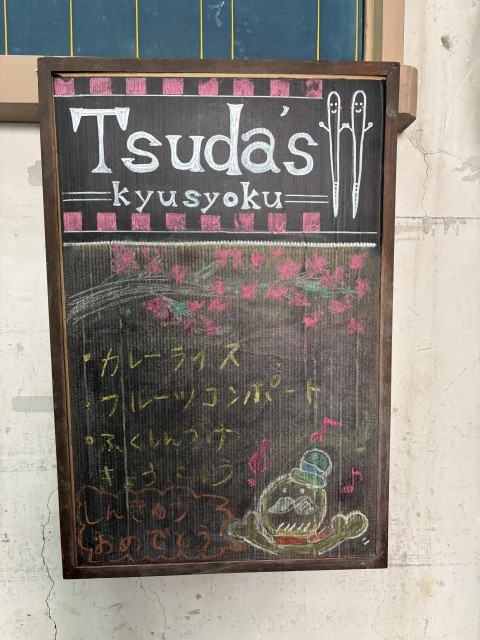 Tsuda's
kyusyoku
・カレーライス
・フルーツコンポート
・ふくしんづけ
ぎょうにゅう
しんきゅう
おめでとう